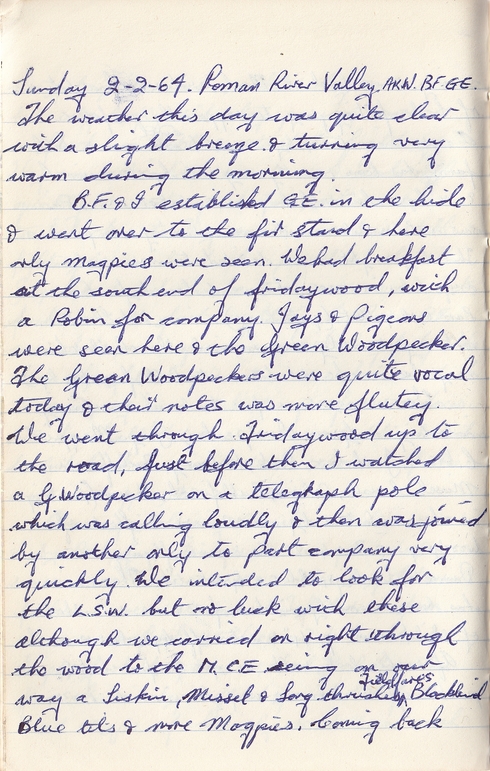 Sunday 2-2-64. Roman River Valley. AKW. BF GE.
The weather this day was quite clear
with a slight breeze & turning very
warm during the morning.
B.F. & I establishd G.E. in the hide
& went over to the fir stand & here
only magpies were seen. We had breakfast
at the south end of fridaywood, with
a Robin for company. Jays & Pigeons
were seen here & the Green Woodpecker.
The Green Woodpeckers were quite vocal
today & their notes was more flutey.
We went through Fridaywood up to
the road, just before then I watched
a G. Woodpecker on a telegraph pole
which was calling loudly & then was joined
by another only to part company very
quickly. We intended to look for
the L.S.W. but no luck with these
although we carried on right through
the wood to the M.C.E seeing on our
way a Siskin, Missel & Song thrushes, Fieldfares, Blackbird
Blue tits & more Magpies. Coming back